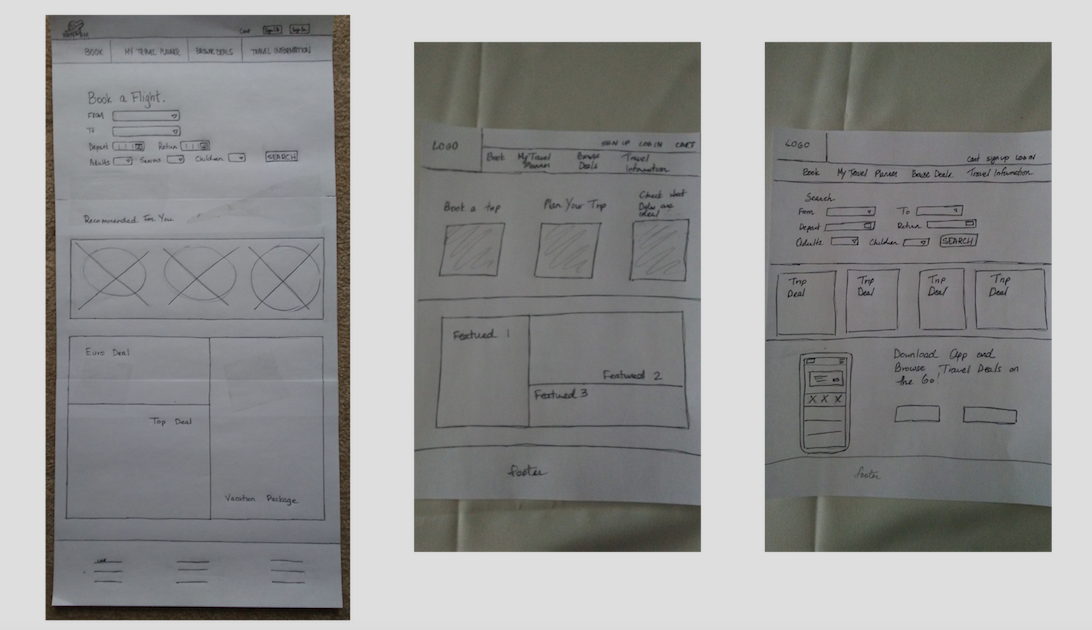 Cart Sign Up Log In
BOOK MY TRAVEL PLANNER BROWSE DEALS TRAVEL INFORMATION
Book a Flight.
FROM
TO
Depart Return
Adults Seniors Children SEARCH
Recommended For You
Euro Deal
Top Deal
Vacation Package
LOGO
SIGN UP LOG IN CART
Book My Travel Planner Browse Deals Travel Information
Book a trip
Plan Your Trip
Check what
Deal
Featured 1
Featured 2
Featured 3
footer
LOGO
Cart sign up LOG IN
Book My Travel Planner Browse Deals Travel Information
Search
From To
Depart Return
Adults Children SEARCH
Trip
Deal
Trip
Deal
Trip
Deal
Trip
Deal
Download App and
Browse Travel Deals on
the Go!
X X X
footer